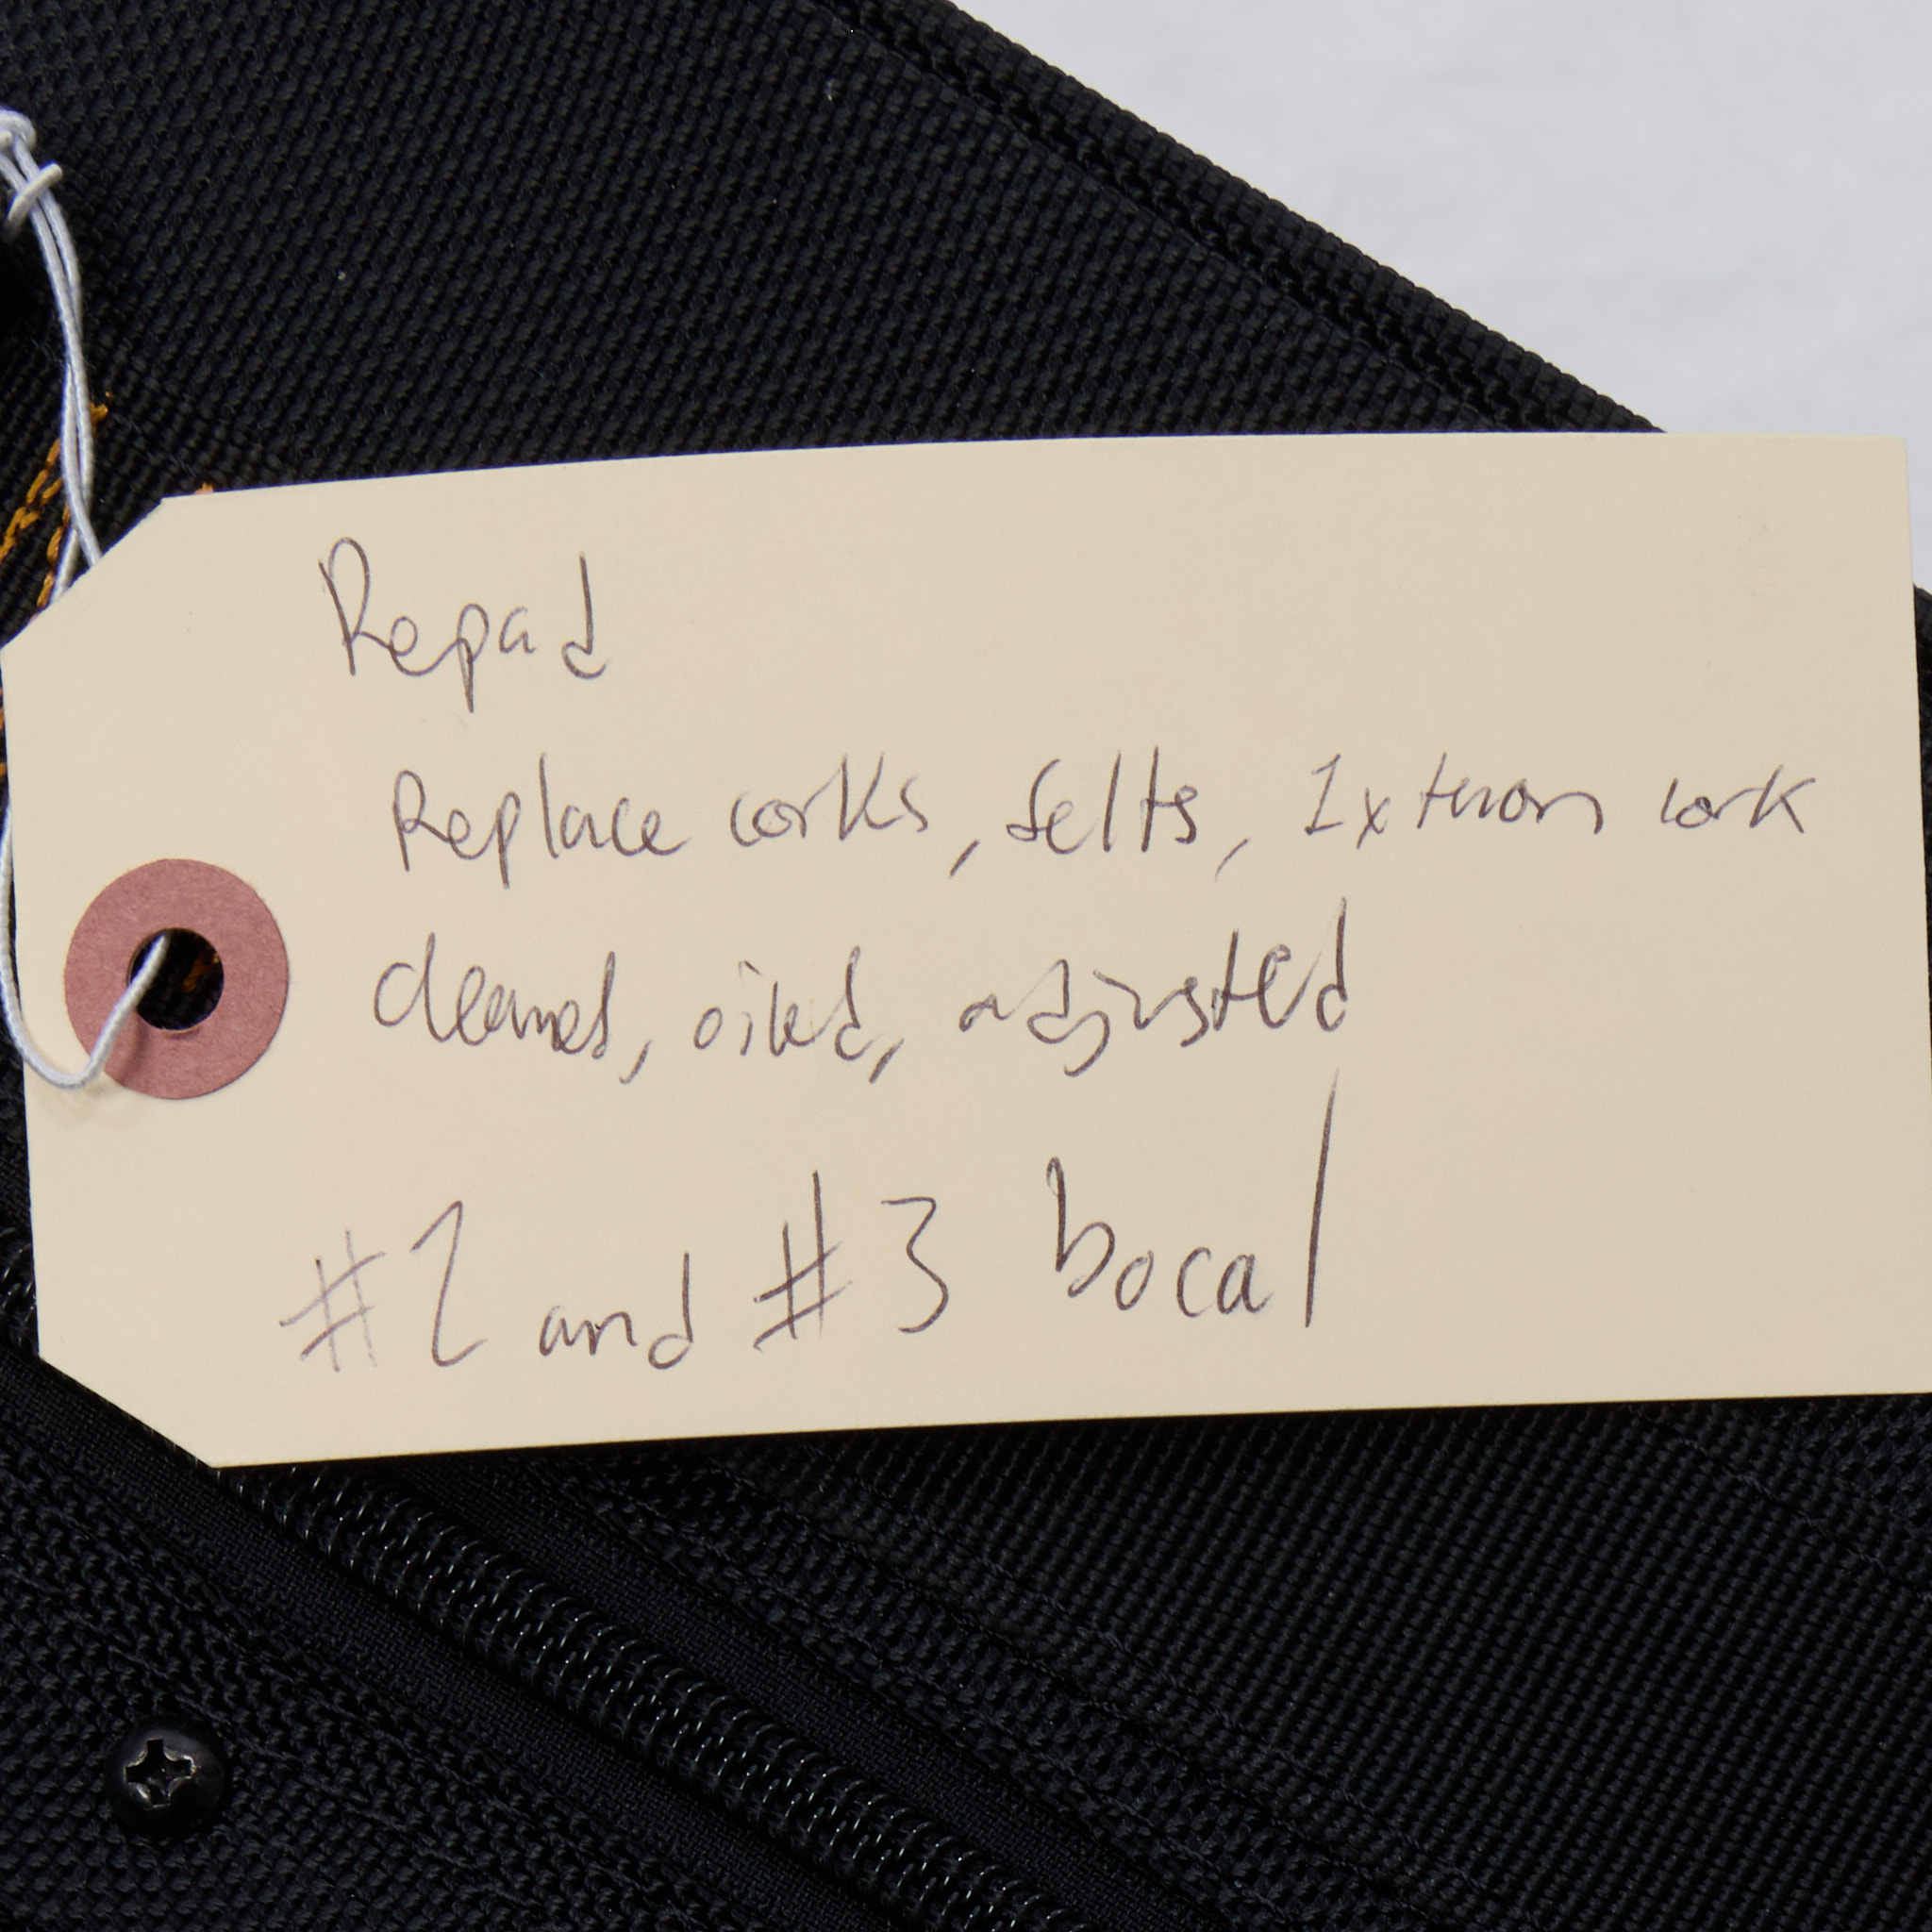 Repad
Replace corks, felts, 1x tenon cork
cleaned, oiled, adjusted
#2 and #3 bocal